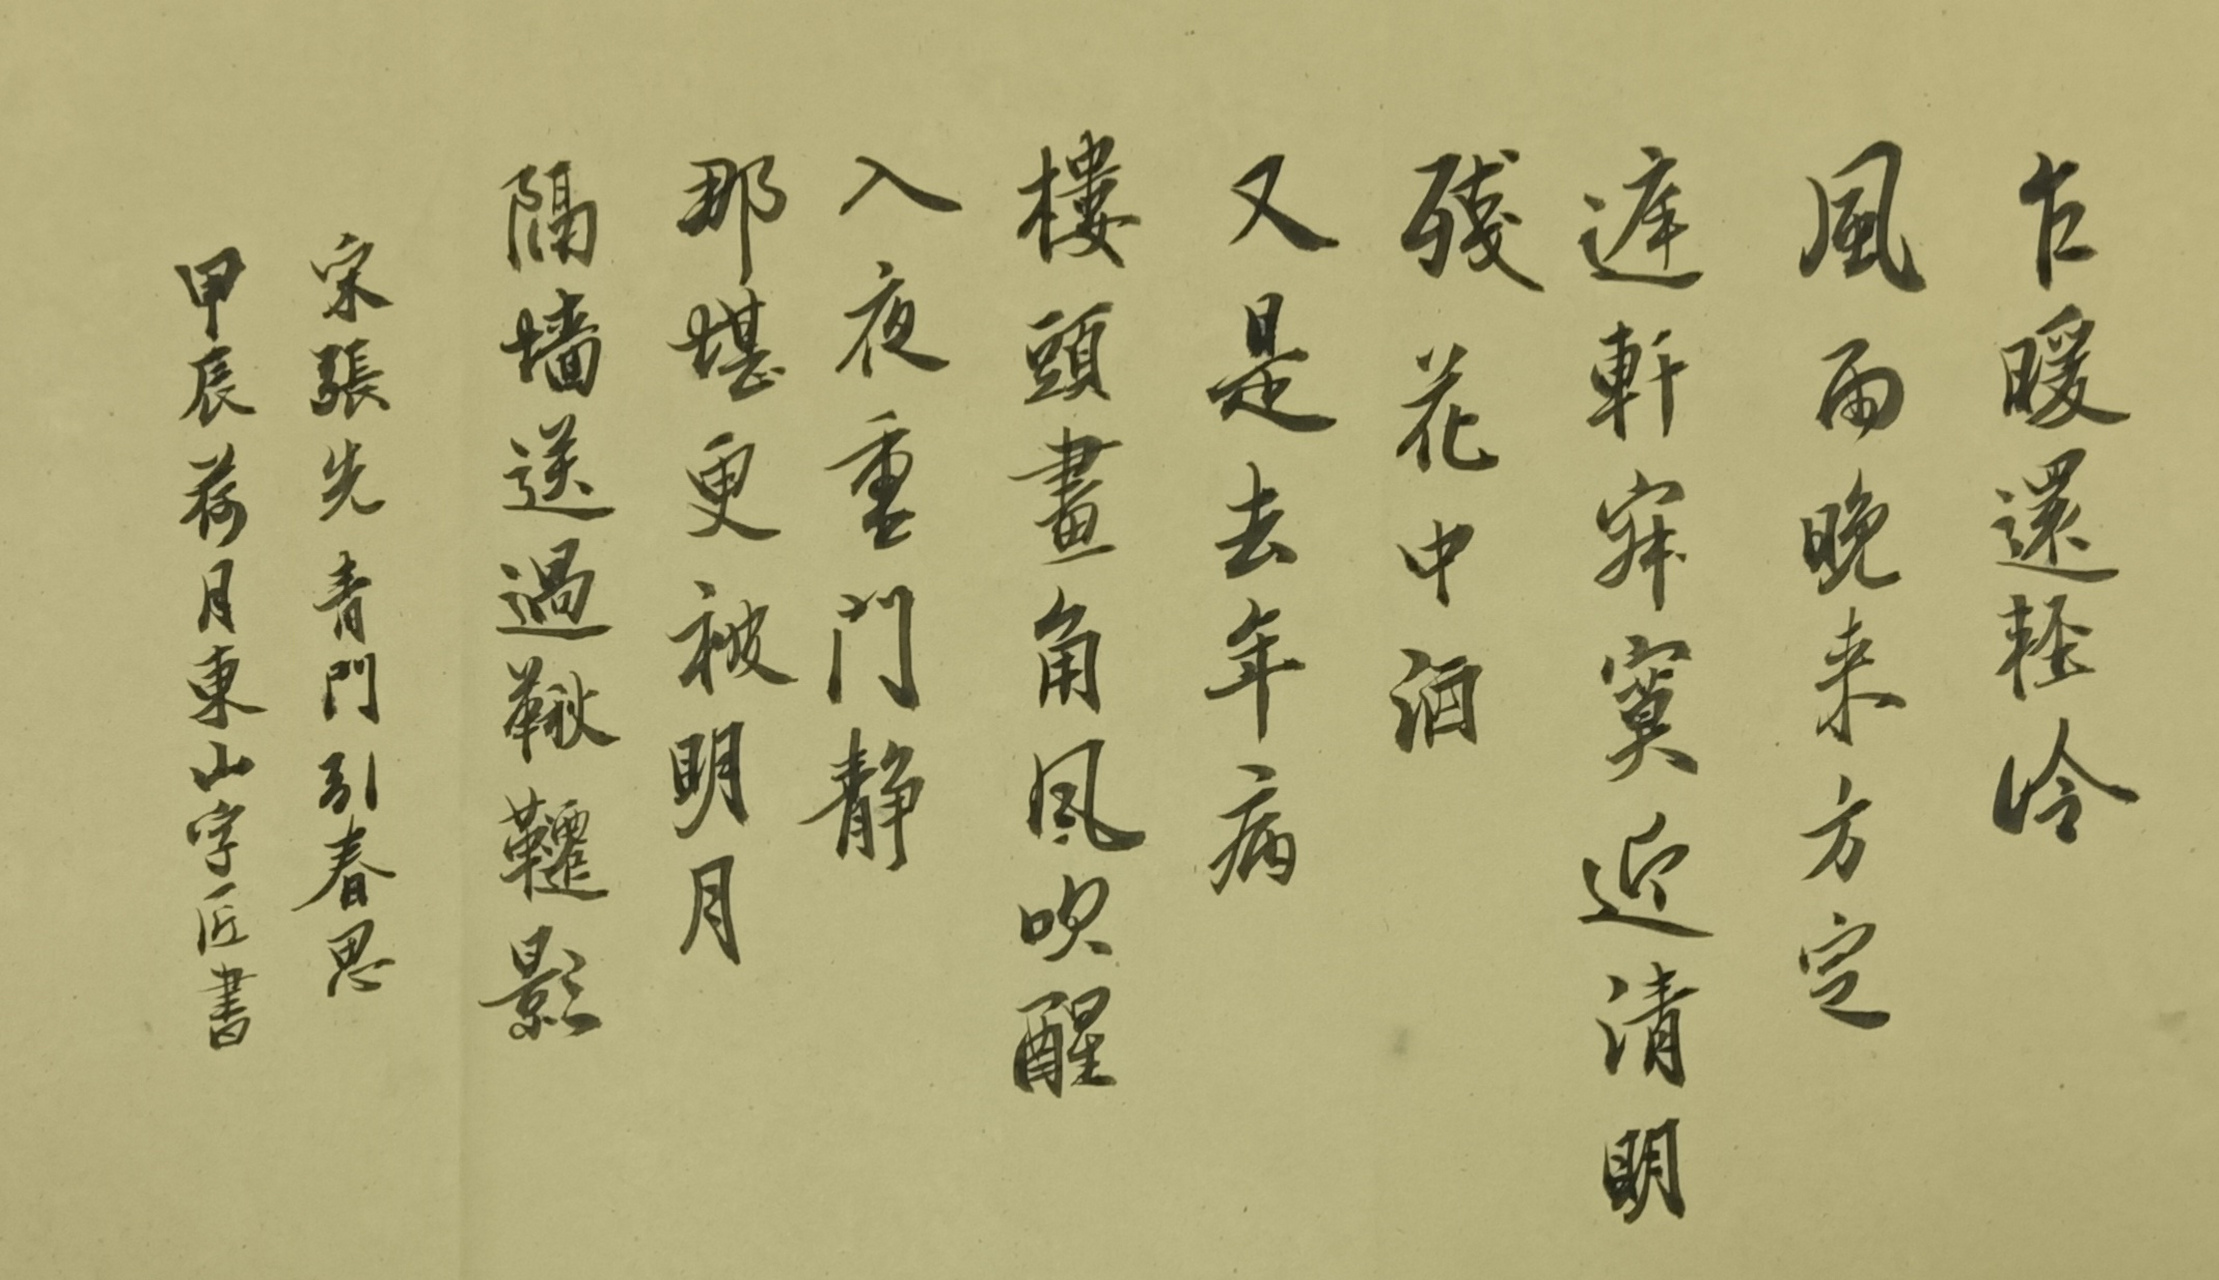 乍暖還輕冷
風雨晚来方定
遅軒寂寞近清明
殘花中酒
又是去年病
樓頭畫角風吹醒
入夜重門静
那堪更被明月
隔墙送過鞦韆影
宋張先青門引春思
甲辰荷月東山字匠書